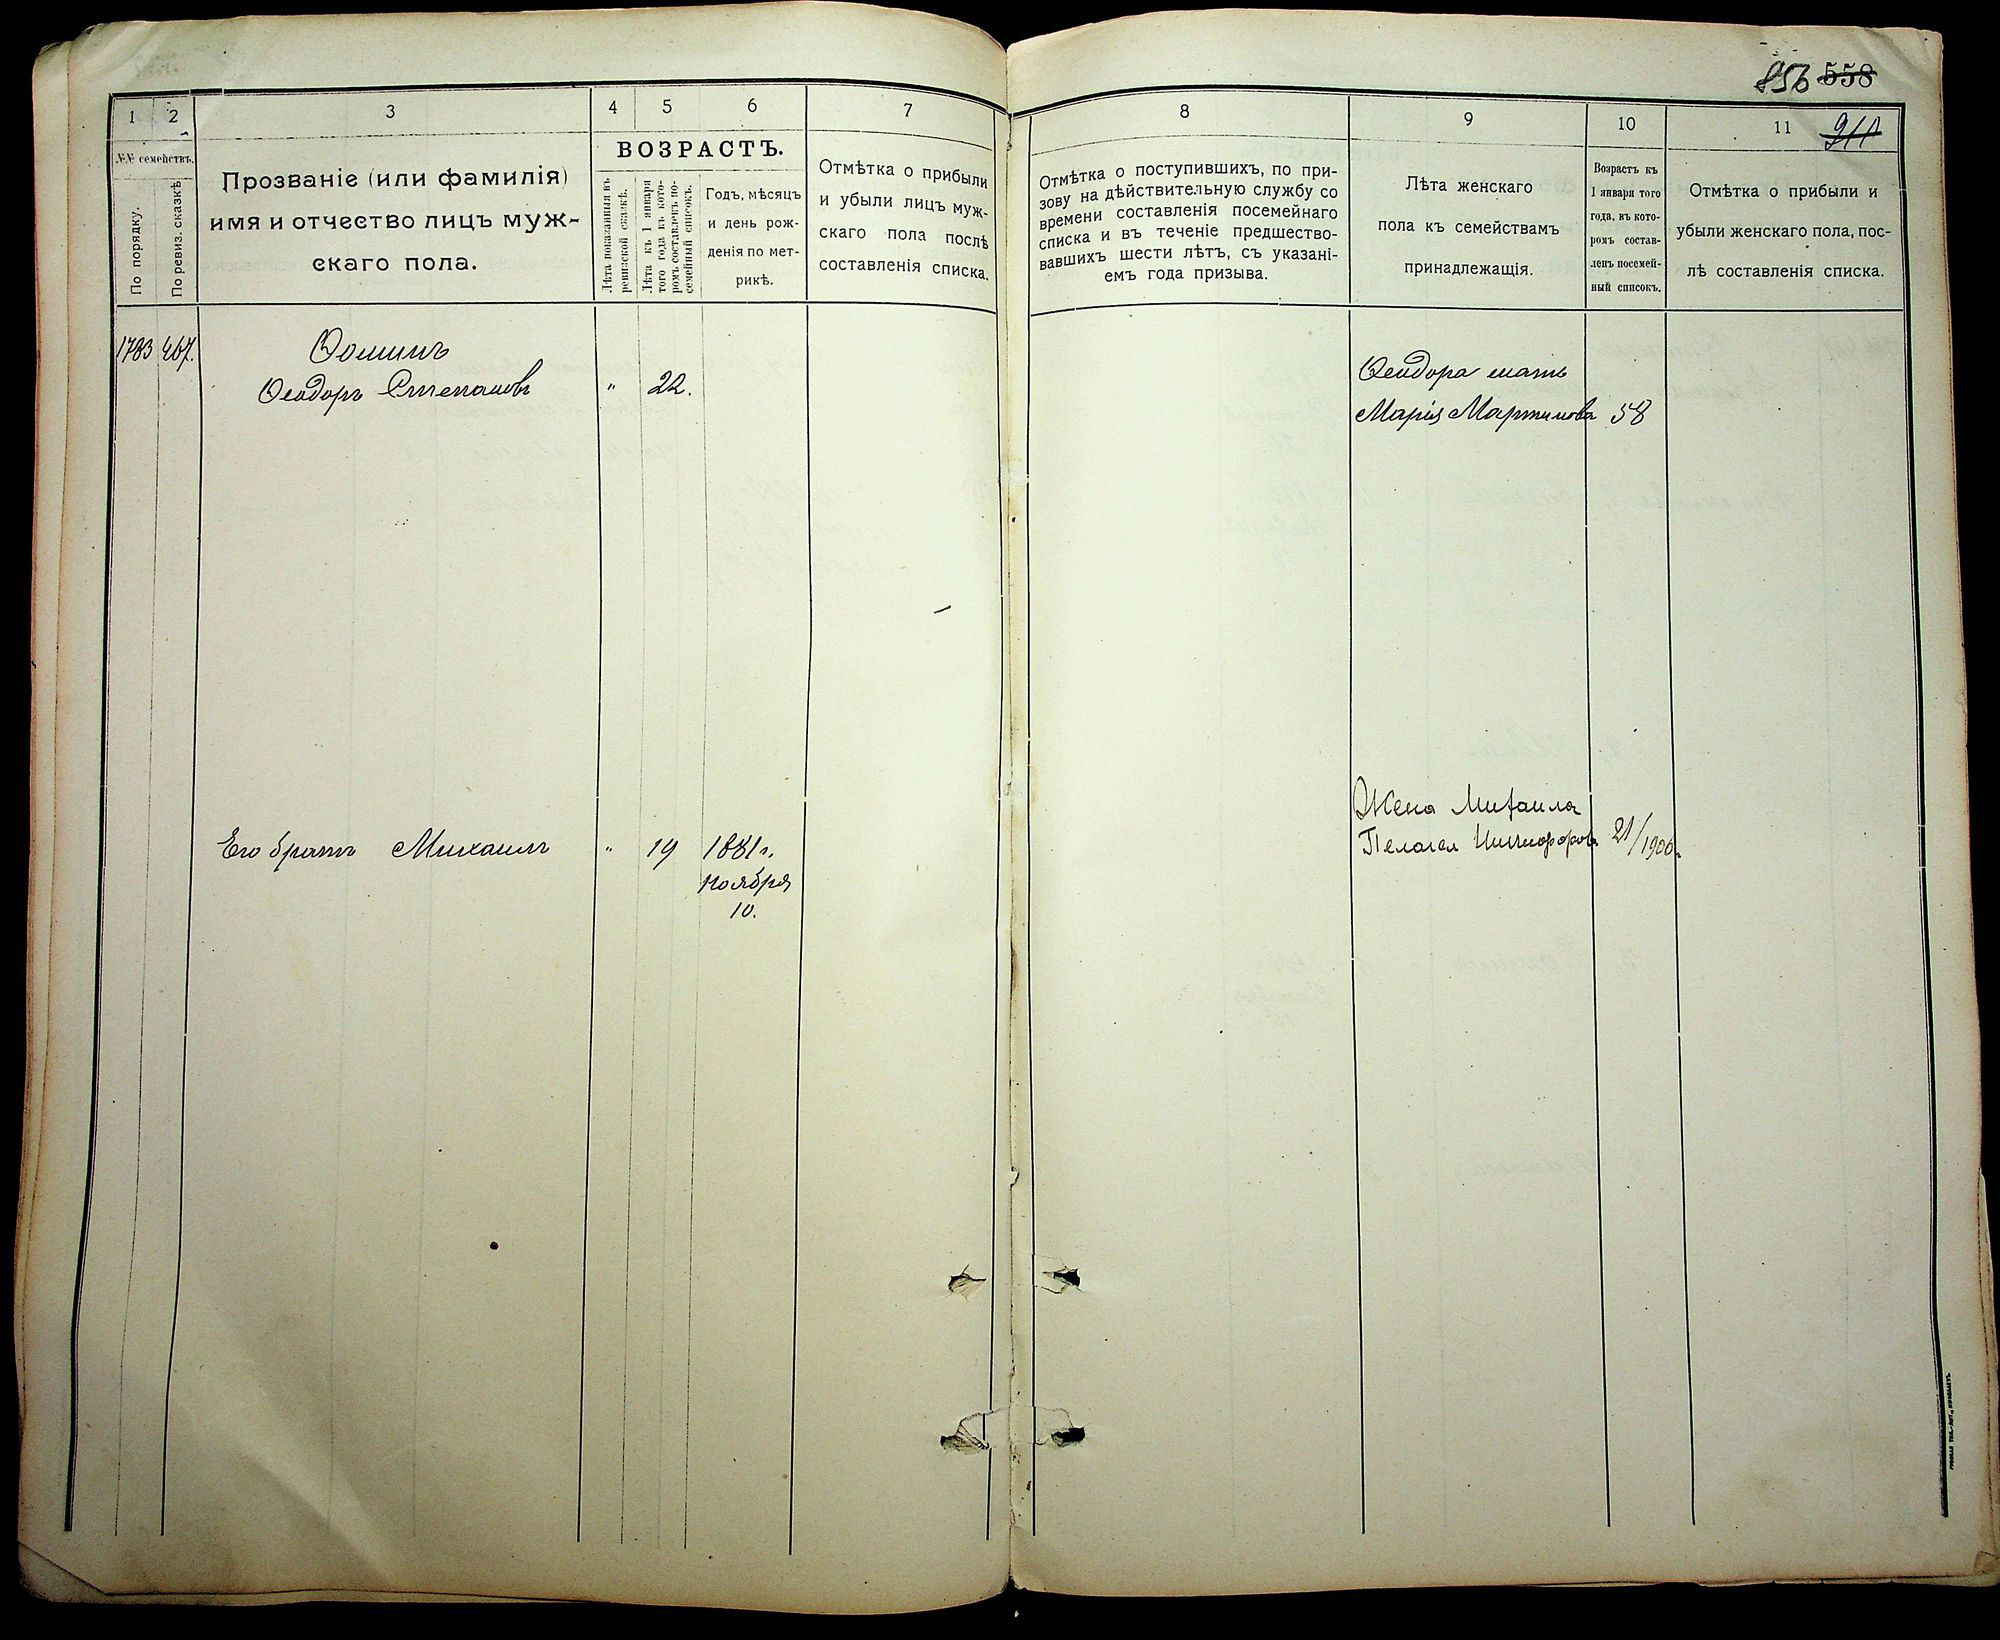 856 558
1 2 3 4 5 6 7
№№ семействъ.
По порядку.
По ревиз. сказкѣ
Прозваніе (или фамилія)
имя и отчество лицъ муж-
скаго пола.
ВОЗРАСТЪ.
Лѣта показанныя въ
ревизской сказкѣ.
Лѣта къ 1 января
того года къ кото-
ромъ составленъ по-
семейный списокъ.
Годъ, мѣсяцъ
и день рож-
денія по мет-
рикѣ.
Отмѣтка о прибыли
и убыли лицъ муж-
скаго пола послѣ
составленія списка.
1783 467. Ѳоминъ
Ѳеодоръ Степановъ " 22.
Его братъ Михаилъ " 19 1881 г.
Ноября
10.
8 9 10 11
Отмѣтка о поступившихъ, по при-
зову на дѣйствительную службу со
времени составленія посемейнаго
списка и въ теченіе предшество-
вавшихъ шести лѣтъ, съ указані-
емъ года призыва.
Лѣта женскаго
пола къ семействамъ
принадлежащія.
Возрастъ къ
1 января того
года, въ кото-
ромъ состав-
ленъ посемей-
ный списокъ.
Отмѣтка о прибыли и
убыли женскаго пола, пос-
лѣ составленія списка.
Ѳеодора мать
Марія Мартинова 58
Жена Михаила
Пелагея Никифорова 21/1906.